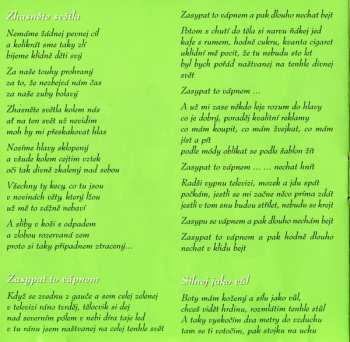 Zhasněte světla
Nemáme žádnej pevnej cíl
a kolikrát sme taky zlí
bijeme klidně děti svý
Za naše touhy prohraný
za to, že nezbejvá nám čas
za naše zuby bolavý
Zhasněte světla kolem nás
ať na ten svět už nevidím
moh by mi přeskakovat hlas
Nosíme hlavy sklopený
a všude kolem cejtim vztek
oči tak divně zkalený nad sebou
Všechny ty kecy, co tu jsou
v novinách věty, který lžou
už mě to vážně nebaví
A sliby v koši s odpadem
a zlobou rozervaná zem
proto si taky připadnem ztracený...
Zasypat to vápnem
Když se zvednu z gauče a sem celej zelenej
v televizi ráno tvrděj, tělocvik si dej
nad severním pólem v nebi díra taje led
v tu ránu jsem naštvanej na celej tenhle svět
Zasypat to vápnem a pak dlouho nechat bejt
Potom s chutí do těla si narvu ňákej jed
kafe s rumem, hodně cukru, kvanta cigaret
uklidní mě pocit, že tu nebudu sto let
byl bych pořád naštvanej na tenhle divnej
svět
Zasypat to vápnem ...
A už mi zase někdo leje rozum do hlavy
co je dobrý, poraděj kvalitní reklamy
co mám koupit, co mám žvejkat, co mám
jíst a pít
podle módy oblíkat se podle šablon žít
Zasypat to vápnem ... ... nechat hnít
Radši vypnu televizi, mozek a jdu spát
počkám, jestli se mi začne něco príma zdát
jestli v tom snu budou střílet, nebudu se krejt
Zasypu se vápnem a pak dlouho nechám bejt
Zasypat to vápnem a pak hodně dlouho
nechat v klidu bejt
Silnej jako vůl
Boty mám kožený a sílu jako vůl,
chceš vidět hrdinu, rozmlátím tenhle stůl
A taky vyskočim dva metry do vzduchu
tam se ti votočim, pak stojku na uchu